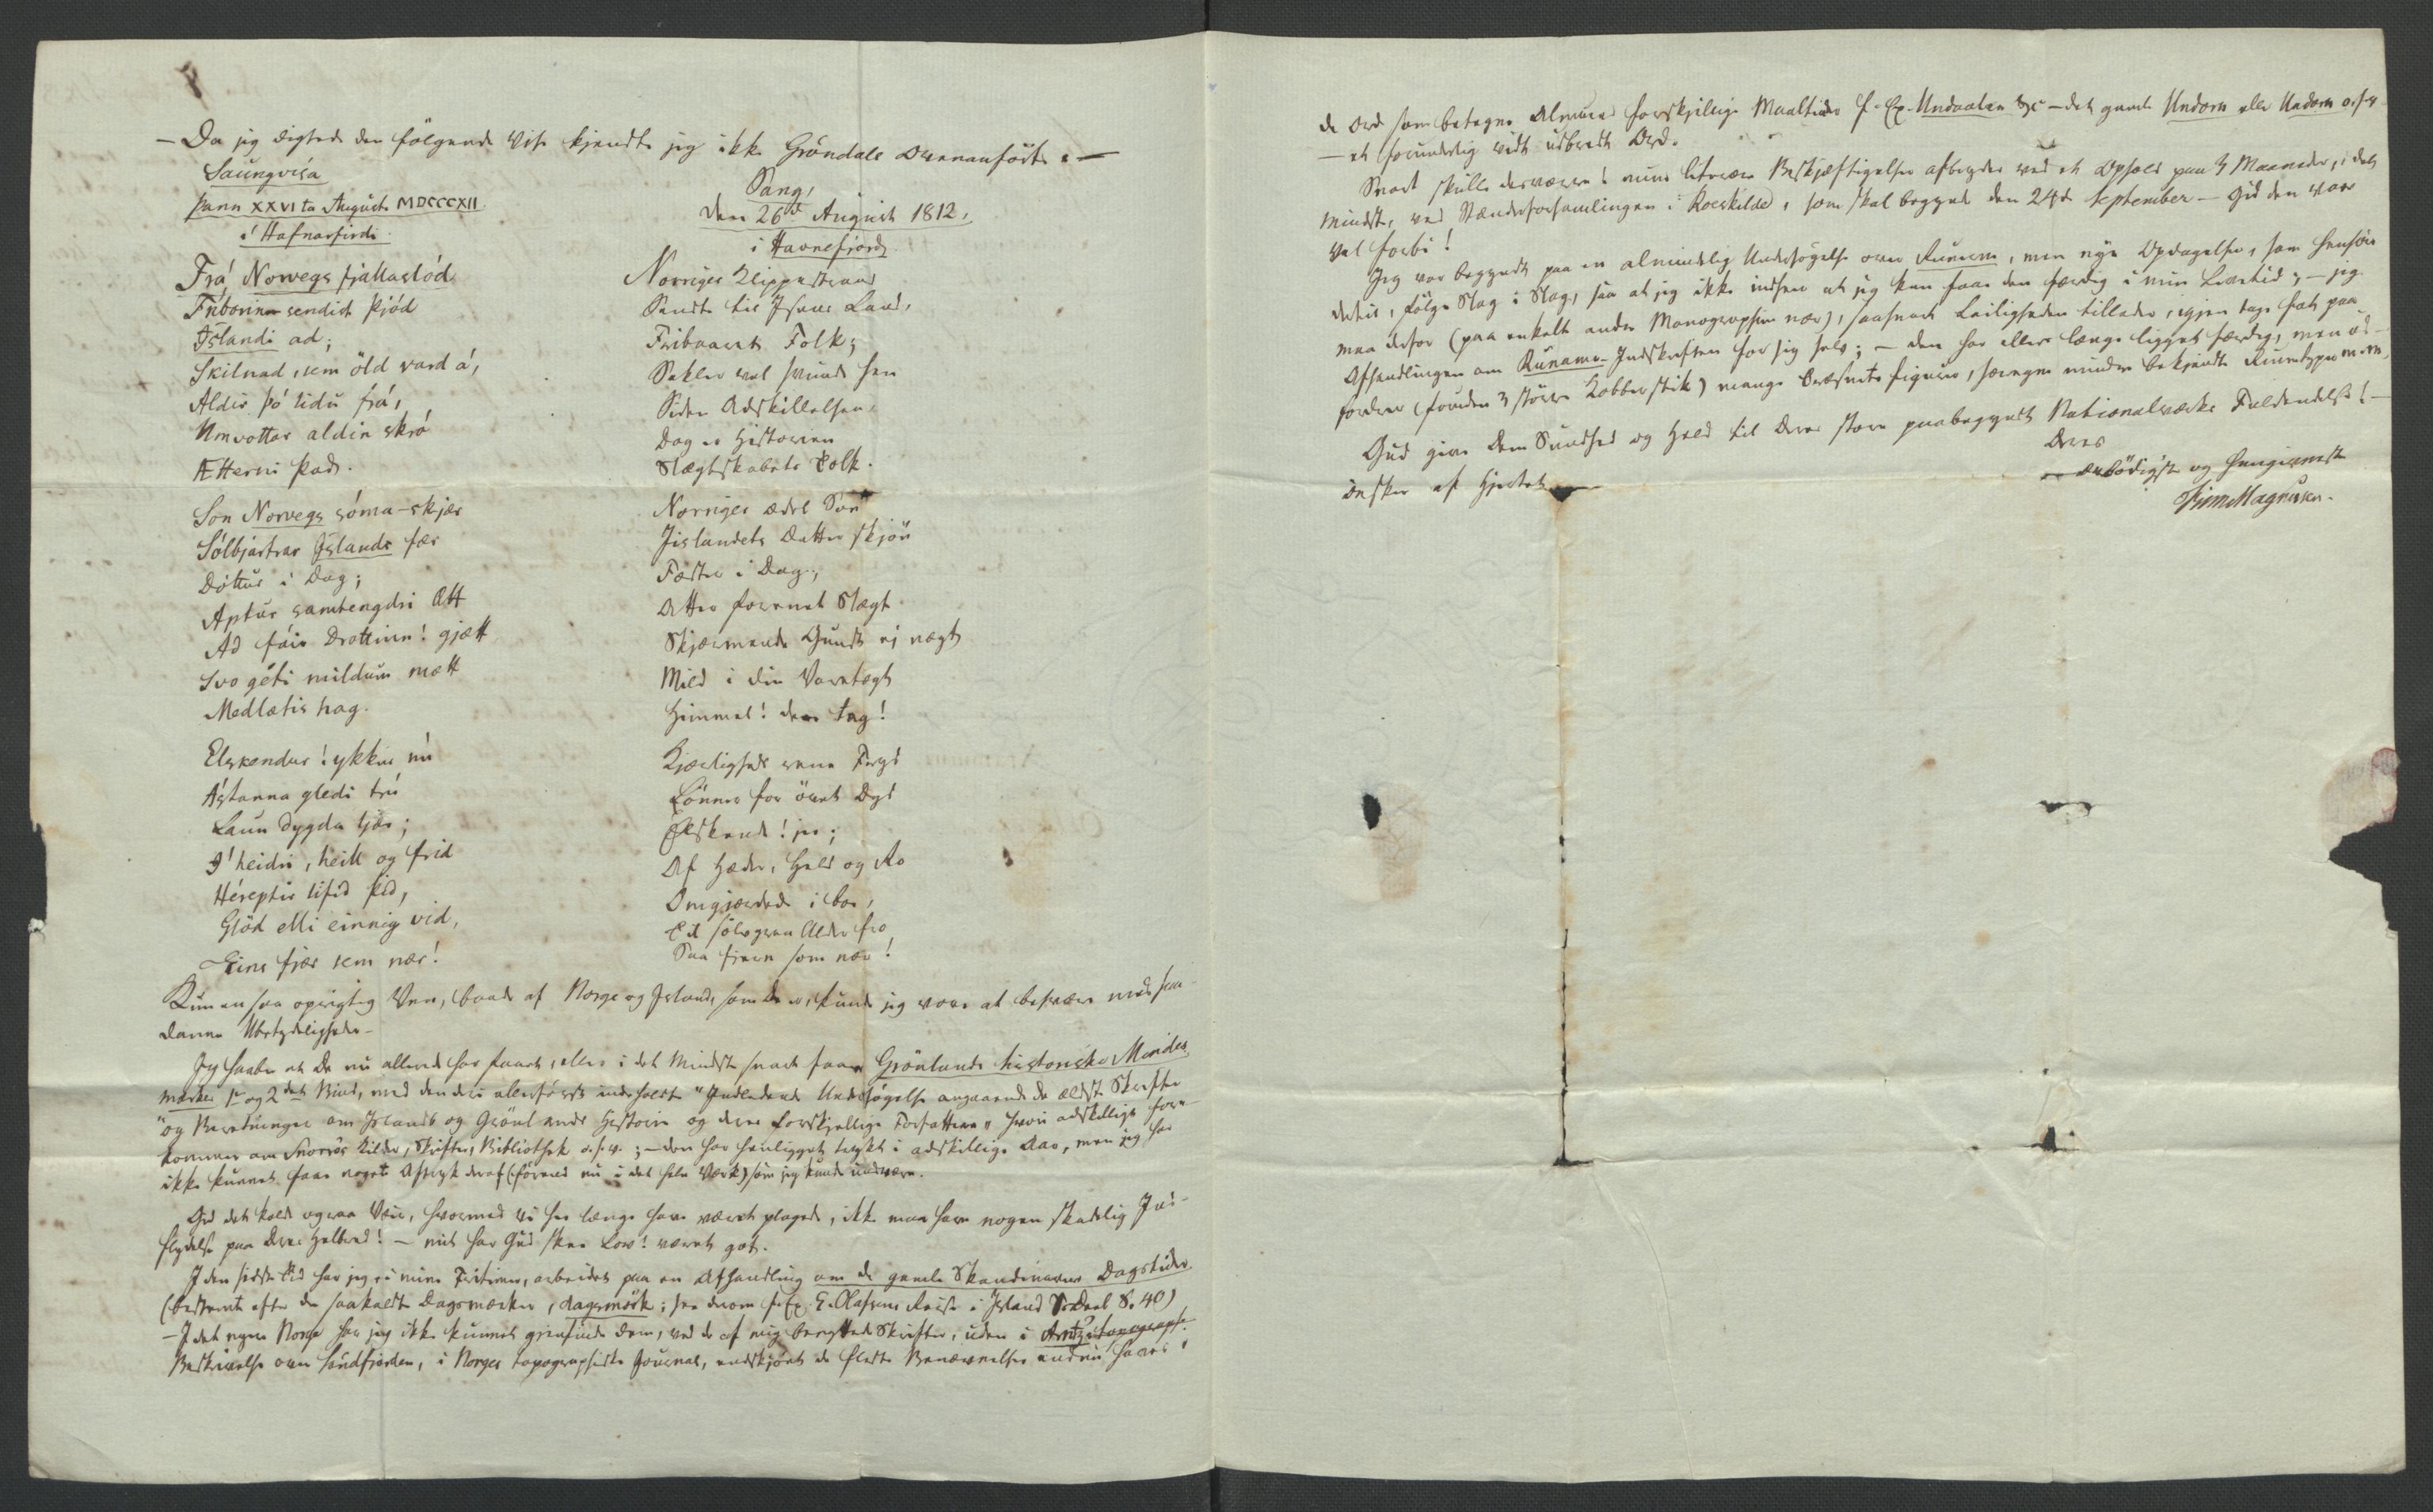 — Da jeg digtede den fölgende Vise kjendte jeg ikke Gröndals Ovenanförte. —
Saungvísa
þann XXVI ta Augusti MDCCCXII
í Hafnarfirdi.
Frá Norvegs fjallaslód
Fríborin sendist þjód
Íslandi ad;
Skilnad, sem öld vard á,
Aldir þó lidu frá,
Umvottar aldin skrá
Ætterni það.
Son Norvegs sóma-skjær
Sólbjartrar Íslands fær
Dóttur í dag;
Aptur samtengdri Ætt
Ad fáir Drottinn! gjætt
Svo géti mildum mætt
Medlætis hag.
Elskendur! ykkur nú
Ástanna gledi trú
Laun dygda ljær;
I' heidri, heill og frid
Héreptir lifid þid,
Glöd elli einnig vid,
Eins fjær sem nær!
Sang,
den 26de August 1812,
i Havnefjord.
Norriges Klippestrand
Sendte til Isens Land,
Fribaaret Folk;
Sekler vel svandt hen
Siden Adskillelsen,
Dog er Historien
Slægtskabets Tolk.
Norriges ædel Sön
Iislandets Datter skjön
Fæster i Dag;
Atter forenet Slægt
Skjærmende Gunst ej nægt
Mild i din Varetægt
Himmel! dem tag!
Kjærligheds rene Fryd
Lönner for övet Dyd
Elskende! jer;
Af Hæder, Held og Ro
Omgjærdede i boe,
Til sölvgraa Alder fro
Saa fjern som nær!
Kun en saa oprigtig Ven, baade af Norge og Island, som De er, kunde jeg vove at besvære med saa-
danne Ubetydeligheder —
Jeg haaber at De nu allerede har faaet, eller i det mindste snart faaer Grönlands historiske Mindes-
mærker 1ste og 2det Bind, med den deri allerførst indeholdte "Indledende Undersögelse angaaende de ældste Skrifter
"og Beretninger om Islands og Grönlands Historie og deres forskjellige Forfattere" hvori adskilligt fore-
kommer om Snorros Kilder, Skrifter, Bibliothek o.s.v.; — den har henligget trykt i adskillige Aar, men jeg har
ikke kunnet faae noget Aftryk deraf (förend nu i det hele Værk) som jeg kunde undvære.
Gid det kolde og raa Veir, hvormed vi her længe have været plagede, ikke maa have nogen skadelig Ind-
flydelse paa Deres Helbred! — mit har Gud skee Lov! været got.
I den sidste Tid har jeg, i mine Fritimer, arbeidet paa en Afhandling om de gamle Skandinavers Dagstider
(bestemte efter de saakaldte Dagsmærker, dagsmörk; see derom f. Ex. E. Olafsens Reise i Island 1ste Deel S. 40)
— I det nyere Norge har jeg ikke kunnet gjenfinde dem, ved de af mig benyttede Skrifter, uden i Arntz's topograph.
Beskrivelse over Söndfjorden, i Norges topographiske Journal, endskjönt de fleste Benævnelser endnu haves i
de Ord som betegne Almuens forskjellige Maaltider f. Ex. Undaaten &c — det gamle Undorn eller Undarn o.s.v.
— et forunderlig vidt udbredt Ord.
Snart skulle desværre! mine literære Beskjæftigelser afbrydes ved et Ophold paa 3 Maaneder, i det
mindste, ved Stænderforsamlingen i Roeskilde, som skal begynde den 24de September — Gid den var
vel forbi!
Jeg var begyndt paa en almindelig Undersögelse over Runerne, men nye Opdagelser, som henhöre
dertil, fölge Slag i Slag, saa at jeg ikke indseer at jeg kan faae den færdig i min Levetid; — jeg
maa derfor (paa enkelte andre Monographier nær), saasnart Leiligheden tillader, igjen tage fat paa
Afhandlingen om Runamo-Indskriften for sig selv; — den har ellers længe ligget færdig, men ud-
fordrer (foruden 3 större Kobberstik) mange træsnits Figurer, saavelsom mindre bekjendte Runetyper m.m.
Gud give Dem Sundhed og Held til Deres store paabegyndte Nationalværks Fuldendelse! —
önsker af Hjertet
Deres
ærbödigste og hengivneste
Finn Magnusen.